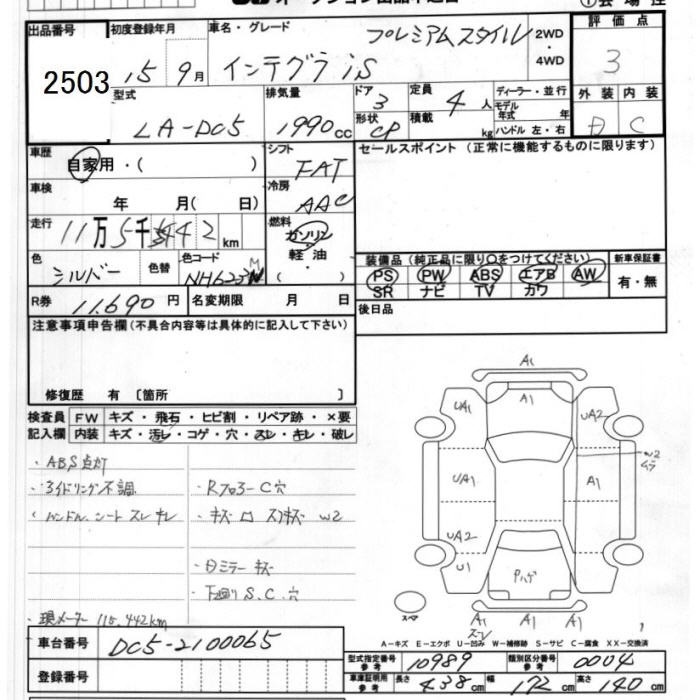 出品番号 初度登録年月 車名・グレード プレミアムスタイル 2WD・4WD 評価点
2503 15 9月 インテグラ iS 3
型式 排気量 ドア 3 定員 4人 ディーラー・並行 外装 内装
LA-DC5 1990cc 形状 CP 積載 kg モデル年式 年 ハンドル 左・右 D C
車歴 自家用・( ) シフト FAT セールスポイント(正常に機能するものに限ります)
車検 年 月( 日) 冷房 AAC
走行 11万5千442km 燃料 ガソリン・軽油・( )
色 シルバー 色替 色コード NH623M 装備品(純正品に限り○をつけてください) 新車保証書
PS PW ABS エアB AW 有・無
SR ナビ TV カワ
R券 11,690円 名変期限 月 日 後日品
注意事項申告欄(不具合内容等は具体的に記入して下さい)
修復歴 有〔箇所 〕
検査員 FW キズ・飛石・ヒビ割・リペア跡・×要
記入欄 内装 キズ・汚レ・コゲ・穴・スレ・キレ・破レ
・ABS点灯
・アイドリング不調 ・Rフロアー C穴
・ハンドル、シート スレ キレ
・ミラー キズ
・下廻りS.C.穴
・現メーター 115,442km
A1
A1
UA1 UA2
W2 ムラ
UA1 A1
UA2
U1 Pハゲ
スペア A1 A1 A1
スレ
車台番号 DC5-2100065 A−キズ E−エクボ U−凹み W−補修跡 S−サビ C−腐食 XX−交換済
登録番号 型式指定番号 参考 10989 類別区分番号 参考 0004
車庫証明用 参考 長さ 438cm 幅 172cm 高さ 140cm